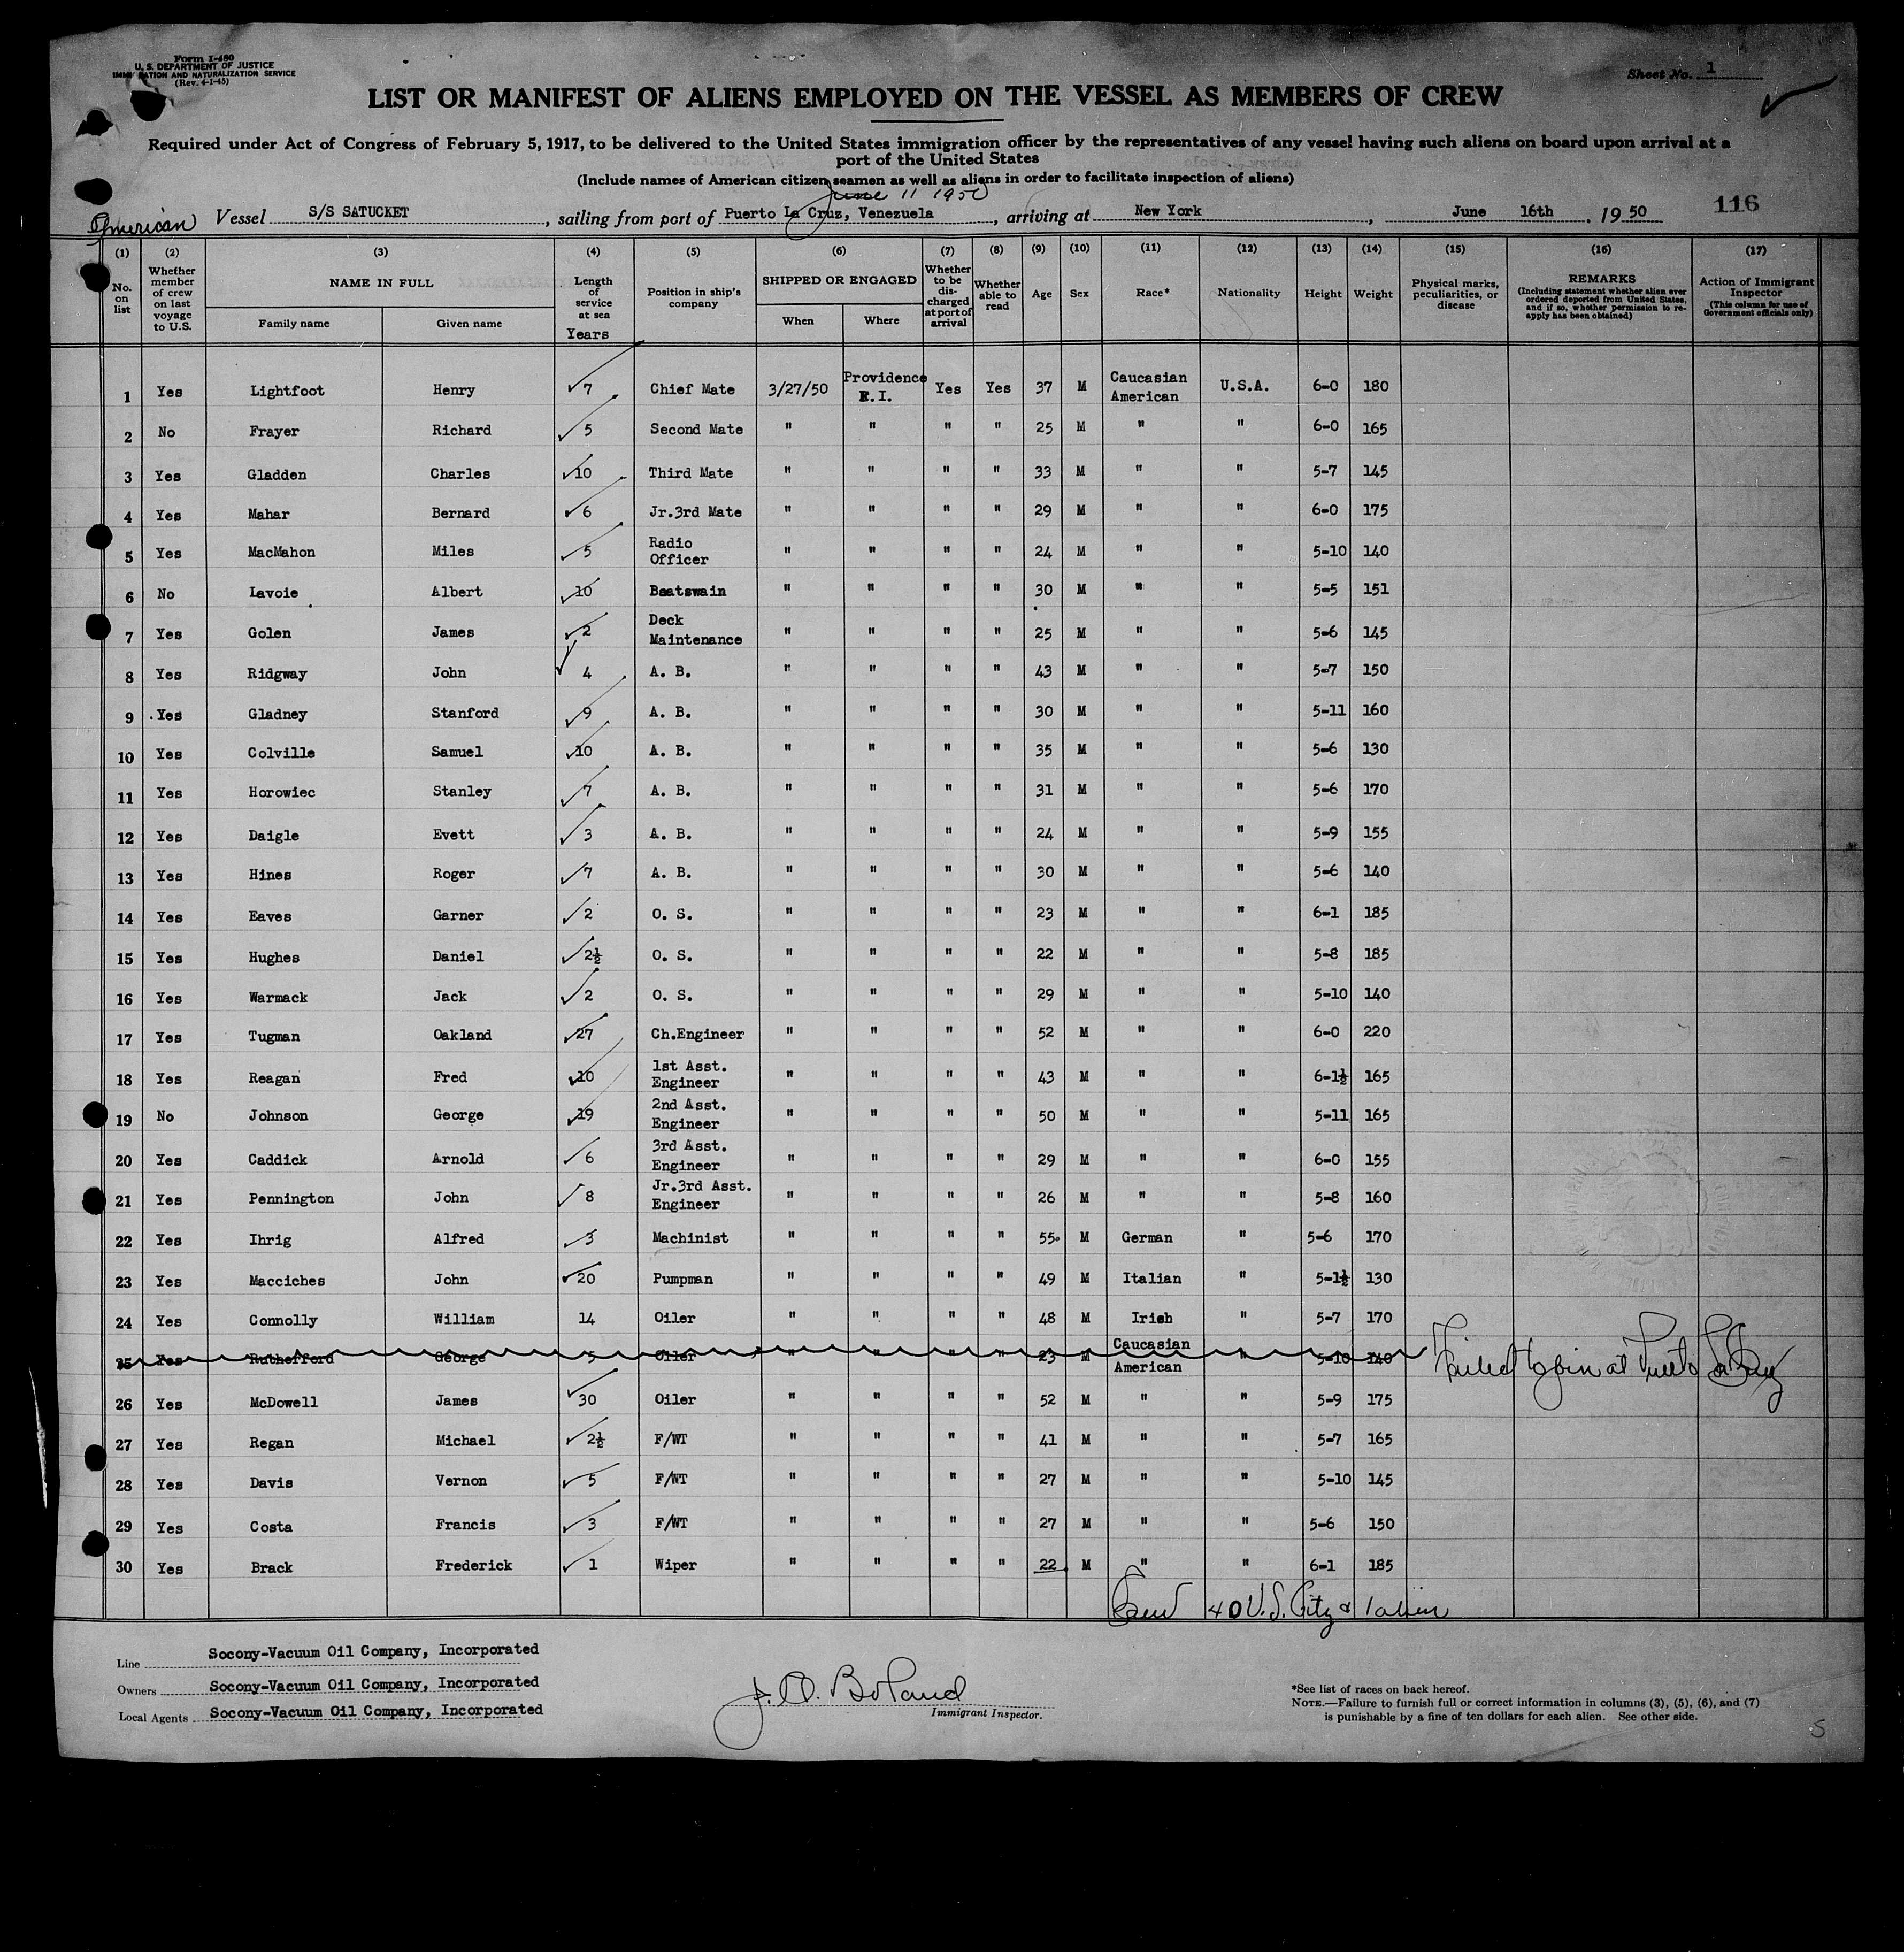 Form I-480
U. S. DEPARTMENT OF JUSTICE
IMMIGRATION AND NATURALIZATION SERVICE
(Rev. 4-1-45)
Sheet No. 1
LIST OR MANIFEST OF ALIENS EMPLOYED ON THE VESSEL AS MEMBERS OF CREW
Required under Act of Congress of February 5, 1917, to be delivered to the United States immigration officer by the representatives of any vessel having such aliens on board upon arrival at a
port of the United States
(Include names of American citizen seamen as well as aliens in order to facilitate inspection of aliens)
June 11 1950
116
American Vessel S/S SATUCKET, sailing from port of Puerto La Cruz, Venezuela, arriving at New York, June 16th, 19 50
(1) (2) (3) (4) (5) (6) (7) (8) (9) (10) (11) (12) (13) (14) (15) (16) (17)
No. on list Whether member of crew on last voyage to U.S. NAME IN FULL Family name Given name Length of service at sea Years Position in ship's company SHIPPED OR ENGAGED When Where Whether to be discharged at port of arrival Whether able to read Age Sex Race* Nationality Height Weight Physical marks, peculiarities, or disease REMARKS (Including statement whether alien ever ordered deported from United States, and if so, whether permission to re-apply has been obtained) Action of Immigrant Inspector (This column for use of Government officials only)
1 Yes Lightfoot Henry 7 Chief Mate 3/27/50 Providence R.I. Yes Yes 37 M Caucasian American U.S.A. 6-0 180
2 No Frayer Richard 5 Second Mate " " " " 25 M " " 6-0 165
3 Yes Gladden Charles 10 Third Mate " " " " 33 M " " 5-7 145
4 Yes Mahar Bernard 6 Jr.3rd Mate " " " " 29 M " " 6-0 175
5 Yes MacMahon Miles 5 Radio Officer " " " " 24 M " " 5-10 140
6 No Lavoie Albert 10 Boatswain " " " " 30 M " " 5-5 151
7 Yes Golen James 2 Deck Maintenance " " " " 25 M " " 5-6 145
8 Yes Ridgway John 4 A. B. " " " " 43 M " " 5-7 150
9 Yes Gladney Stanford 9 A. B. " " " " 30 M " " 5-11 160
10 Yes Colville Samuel 10 A. B. " " " " 35 M " " 5-6 130
11 Yes Horowiec Stanley 7 A. B. " " " " 31 M " " 5-6 170
12 Yes Daigle Evett 3 A. B. " " " " 24 M " " 5-9 155
13 Yes Hines Roger 7 A. B. " " " " 30 M " " 5-6 140
14 Yes Eaves Garner 2 O. S. " " " " 23 M " " 6-1 185
15 Yes Hughes Daniel 2½ O. S. " " " " 22 M " " 5-8 185
16 Yes Warmack Jack 2 O. S. " " " " 29 M " " 5-10 140
17 Yes Tugman Oakland 27 Ch.Engineer " " " " 52 M " " 6-0 220
18 Yes Reagan Fred 10 1st Asst. Engineer " " " " 43 M " " 6-1½ 165
19 No Johnson George 19 2nd Asst. Engineer " " " " 50 M " " 5-11 165
20 Yes Caddick Arnold 6 3rd Asst. Engineer " " " " 29 M " " 6-0 155
21 Yes Pennington John 8 Jr.3rd Asst. Engineer " " " " 26 M " " 5-8 160
22 Yes Ihrig Alfred 3 Machinist " " " " 55 M German " 5-6 170
23 Yes Macciches John 20 Pumpman " " " " 49 M Italian " 5-1½ 130
24 Yes Connolly William 14 Oiler " " " " 48 M Irish " 5-7 170
25 Yes Rutherford George 5 Oiler " " " " 23 M Caucasian American " 5-10 140 Failed to join at Puerto La Cruz
26 Yes McDowell James 30 Oiler " " " " 52 M " " 5-9 175
27 Yes Regan Michael 2½ F/WT " " " " 41 M " " 5-7 165
28 Yes Davis Vernon 5 F/WT " " " " 27 M " " 5-10 145
29 Yes Costa Francis 3 F/WT " " " " 27 M " " 5-6 150
30 Yes Brack Frederick 1 Wiper " " " " 22 M " " 6-1 185
Crew 40 U.S. Citz & 1 alien
Line Socony-Vacuum Oil Company, Incorporated
Owners Socony-Vacuum Oil Company, Incorporated
Local Agents Socony-Vacuum Oil Company, Incorporated
Boland
Immigrant Inspector.
*See list of races on back hereof.
NOTE.—Failure to furnish full or correct information in columns (3), (5), (6), and (7)
is punishable by a fine of ten dollars for each alien. See other side.